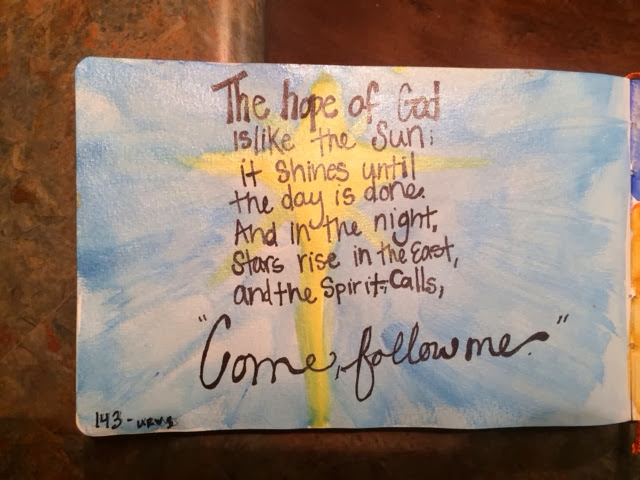 The hope of God
is like the Sun;
it shines until
the day is done.
And in the night,
Stars rise in the East,
and the Spirit Calls,
"Come, follow me."
143-